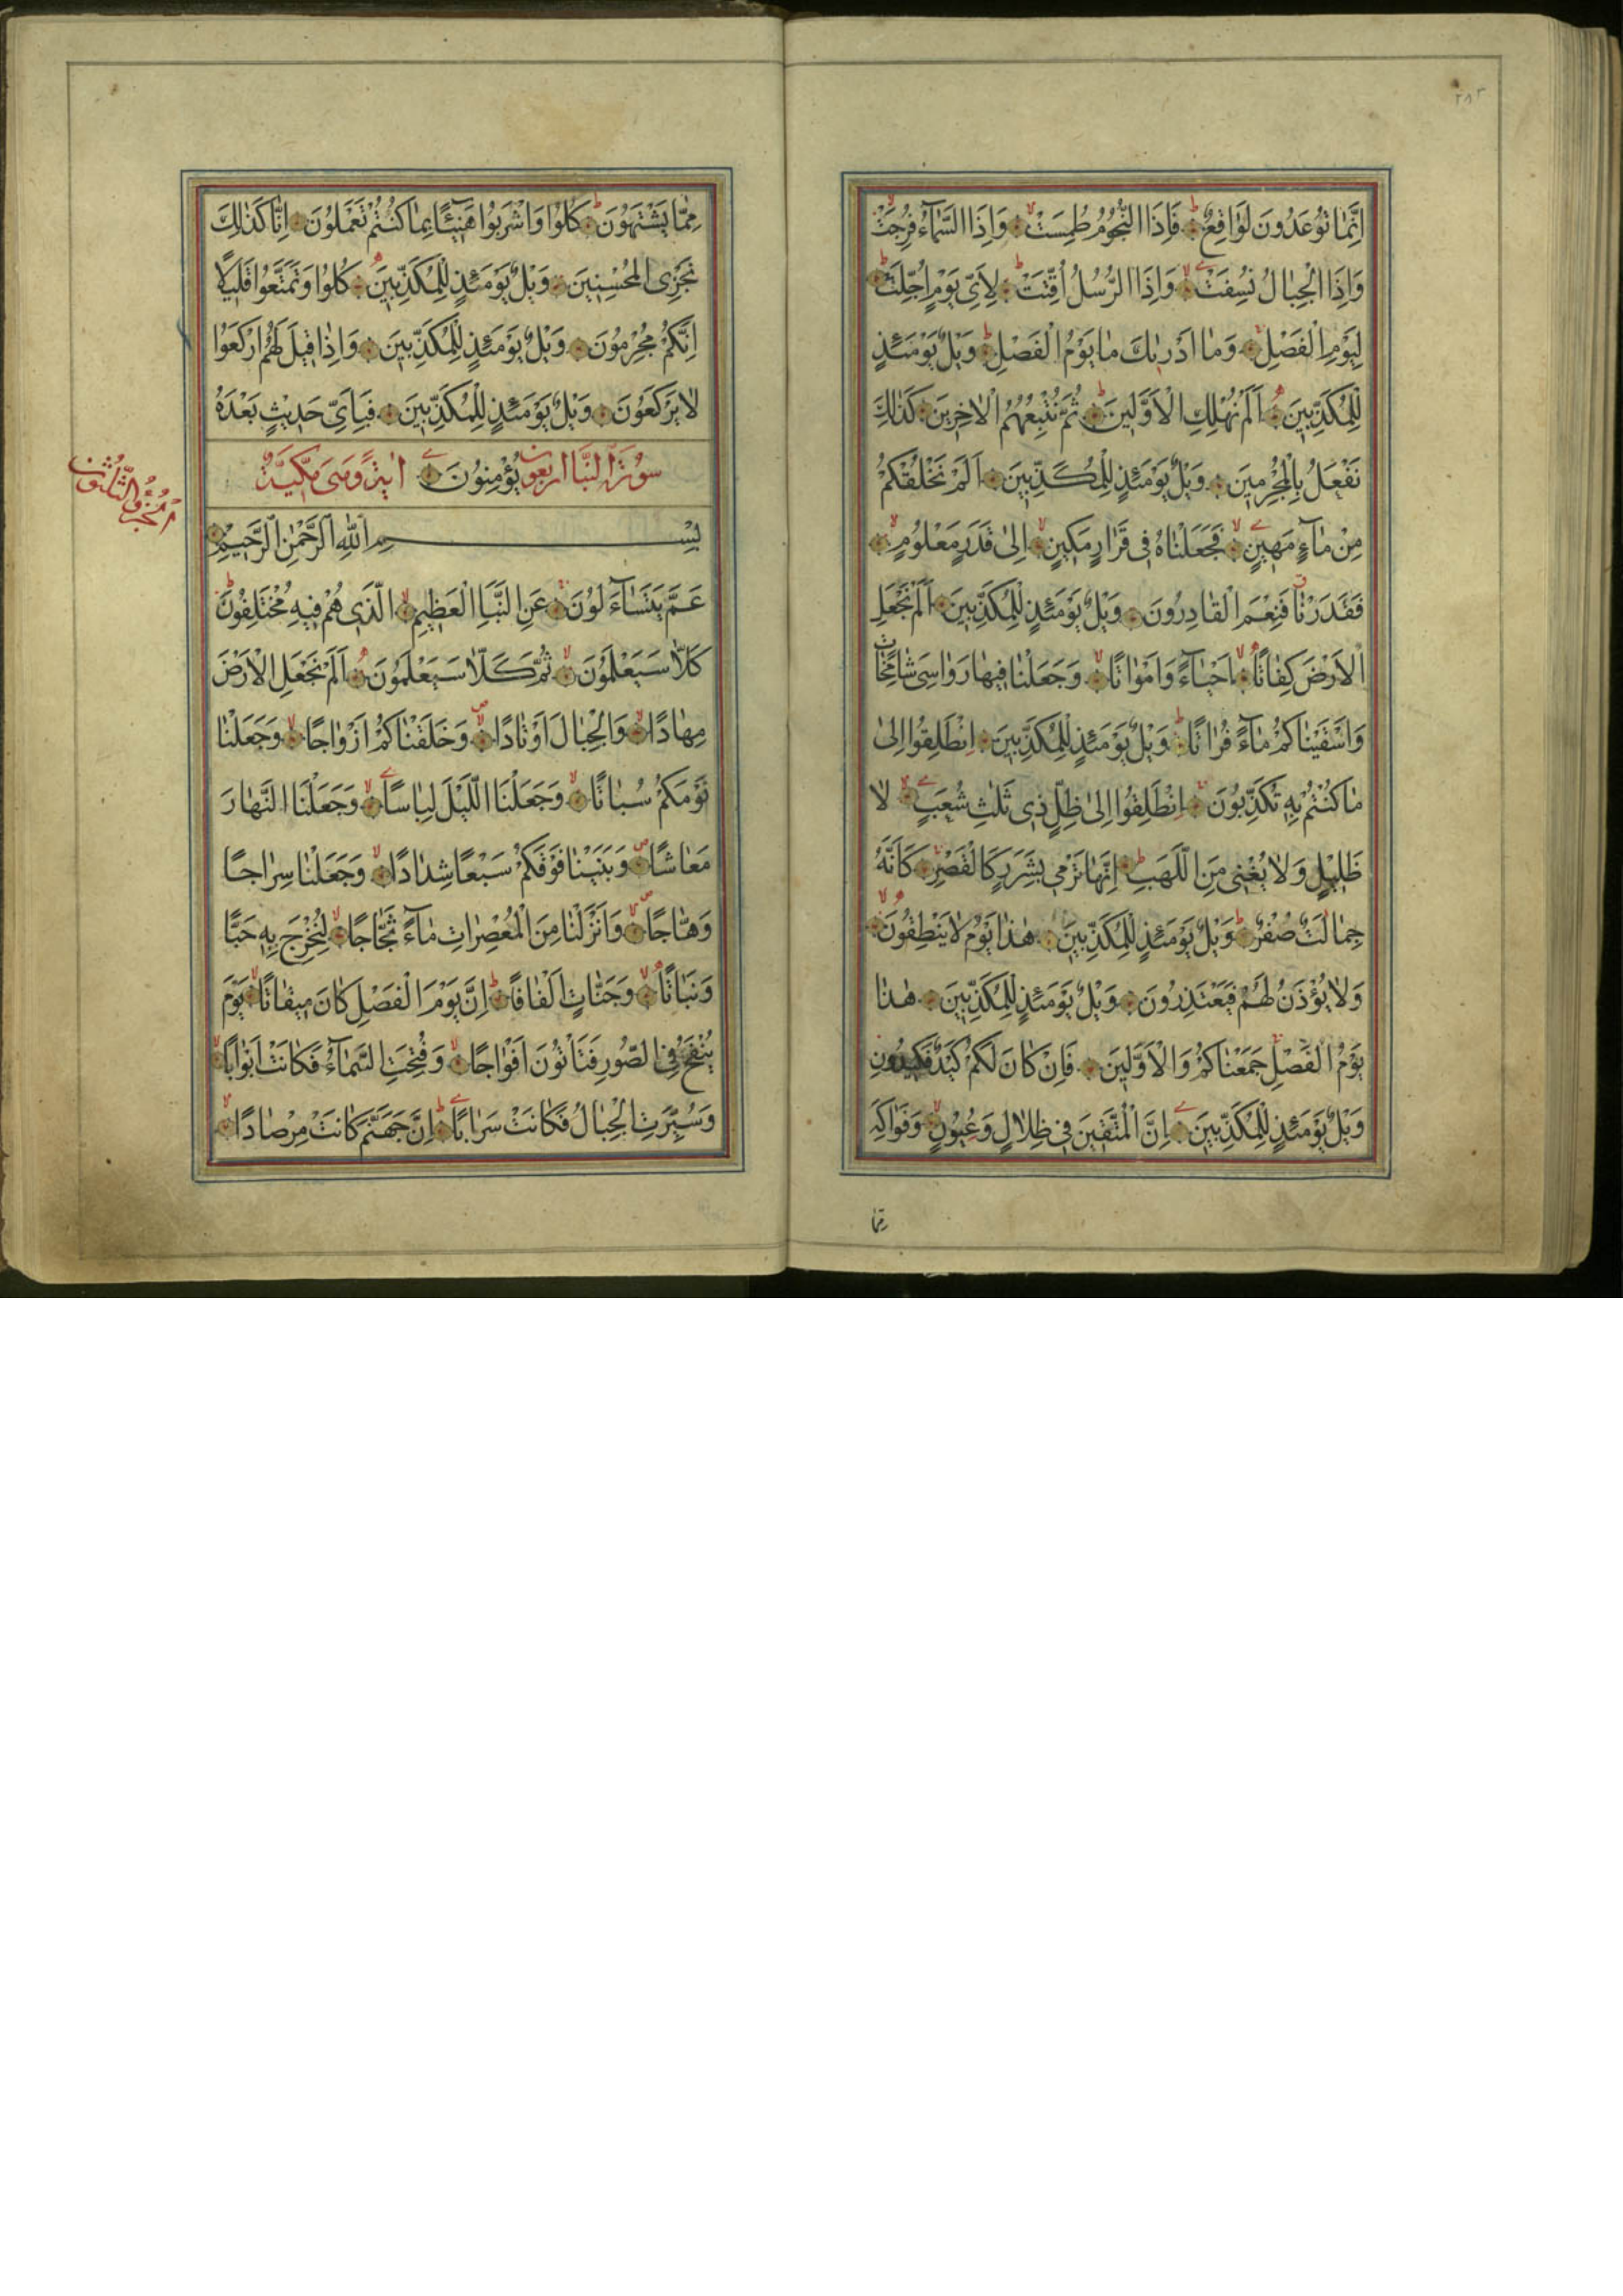 ٢٨٢
اِنَّمٰا تُوعَدُونَ لَوٰاقِعٌ فَاِذَا النُّجُومُ طُمِسَتْ وَاِذَا السَّمٰآءُ فُرِجَتْ
وَاِذَا الْجِبٰالُ نُسِفَتْ وَاِذَا الرُّسُلُ اُقِّتَتْ لِاَىِّ يَوْمٍ اُجِّلَتْ
لِيَوْمِ الْفَصْلِ وَمٰا اَدْرٰيكَ مٰا يَوْمُ الْفَصْلِ وَيْلٌ يَوْمَئِذٍ
لِلْمُكَذِّبِينَ اَلَمْ نُهْلِكِ الْاَوَّلِينَ ثُمَّ نُتْبِعُهُمُ الْاٰخِرِينَ كَذٰلِكَ
نَفْعَلُ بِالْمُجْرِمِينَ وَيْلٌ يَوْمَئِذٍ لِلْمُكَذِّبِينَ اَلَمْ نَخْلُقْكُمْ
مِنْ مٰآءٍ مَهِينٍ فَجَعَلْنٰاهُ فِى قَرٰارٍ مَكِينٍ اِلىٰ قَدَرٍ مَعْلُومٍ
فَقَدَرْنٰا فَنِعْمَ الْقٰادِرُونَ وَيْلٌ يَوْمَئِذٍ لِلْمُكَذِّبِينَ اَلَمْ نَجْعَلِ
الْاَرْضَ كِفٰاتًا اَحْيٰآءً وَاَمْوٰاتًا وَجَعَلْنٰا فِيهٰا رَوٰاسِىَ شٰامِخٰاتٍ
وَاَسْقَيْنٰاكُمْ مٰآءً فُرٰاتًا وَيْلٌ يَوْمَئِذٍ لِلْمُكَذِّبِينَ اِنْطَلِقُوا اِلىٰ
مٰا كُنْتُمْ بِهِ تُكَذِّبُونَ اِنْطَلِقُوا اِلىٰ ظِلٍّ ذِى ثَلٰثِ شُعَبٍ لٰا
ظَلِيلٍ وَلٰا يُغْنِى مِنَ اللَّهَبِ اِنَّهٰا تَرْمِى بِشَرَرٍ كَالْقَصْرِ كَاَنَّهُ
جِمٰالَتٌ صُفْرٌ وَيْلٌ يَوْمَئِذٍ لِلْمُكَذِّبِينَ هٰذٰا يَوْمُ لٰا يَنْطِقُونَ
وَلٰا يُؤْذَنُ لَهُمْ فَيَعْتَذِرُونَ وَيْلٌ يَوْمَئِذٍ لِلْمُكَذِّبِينَ هٰذٰا
يَوْمُ الْفَصْلِ جَمَعْنٰاكُمْ وَالْاَوَّلِينَ فَاِنْ كٰانَ لَكُمْ كَيْدٌ فَكِيدُونِ
وَيْلٌ يَوْمَئِذٍ لِلْمُكَذِّبِينَ اِنَّ الْمُتَّقِينَ فِى ظِلٰالٍ وَعُيُونٍ وَفَوٰاكِهَ
مِمّٰا
مِمّٰا يَشْتَهُونَ كُلُوا وَاشْرَبُوا هَنِيئًا بِمٰا كُنْتُمْ تَعْمَلُونَ اِنّٰا كَذٰلِكَ
نَجْزِى الْمُحْسِنِينَ وَيْلٌ يَوْمَئِذٍ لِلْمُكَذِّبِينَ كُلُوا وَتَمَتَّعُوا قَلِيلًا
اِنَّكُمْ مُجْرِمُونَ وَيْلٌ يَوْمَئِذٍ لِلْمُكَذِّبِينَ وَاِذٰا قِيلَ لَهُمُ ارْكَعُوا
لٰا يَرْكَعُونَ وَيْلٌ يَوْمَئِذٍ لِلْمُكَذِّبِينَ فَبِاَىِّ حَدِيثٍ بَعْدَهُ
سُورَةُ النَّبَاِ اربعون يُؤْمِنُونَ اٰيَةً وَهِىَ مَكِّيَّةٌ
الجُزْءُ الثَّلٰثُون
بِسْمِ اللّٰهِ الرَّحْمٰنِ الرَّحِيمِ
عَمَّ يَتَسٰآءَلُونَ عَنِ النَّبَاِ الْعَظِيمِ الَّذِى هُمْ فِيهِ مُخْتَلِفُونَ
كَلّٰا سَيَعْلَمُونَ ثُمَّ كَلّٰا سَيَعْلَمُونَ اَلَمْ نَجْعَلِ الْاَرْضَ
مِهٰادًا وَالْجِبٰالَ اَوْتٰادًا وَخَلَقْنٰاكُمْ اَزْوٰاجًا وَجَعَلْنٰا
نَوْمَكُمْ سُبٰاتًا وَجَعَلْنَا اللَّيْلَ لِبٰاسًا وَجَعَلْنَا النَّهٰارَ
مَعٰاشًا وَبَنَيْنٰا فَوْقَكُمْ سَبْعًا شِدٰادًا وَجَعَلْنٰا سِرٰاجًا
وَهّٰاجًا وَاَنْزَلْنٰا مِنَ الْمُعْصِرٰاتِ مٰآءً ثَجّٰاجًا لِنُخْرِجَ بِهِ حَبًّا
وَنَبٰاتًا وَجَنّٰاتٍ اَلْفٰافًا اِنَّ يَوْمَ الْفَصْلِ كٰانَ مِيقٰاتًا يَوْمَ
يُنْفَخُ فِى الصُّورِ فَتَاْتُونَ اَفْوٰاجًا وَفُتِحَتِ السَّمٰآءُ فَكٰانَتْ اَبْوٰابًا
وَسُيِّرَتِ الْجِبٰالُ فَكٰانَتْ سَرٰابًا اِنَّ جَهَنَّمَ كٰانَتْ مِرْصٰادًا